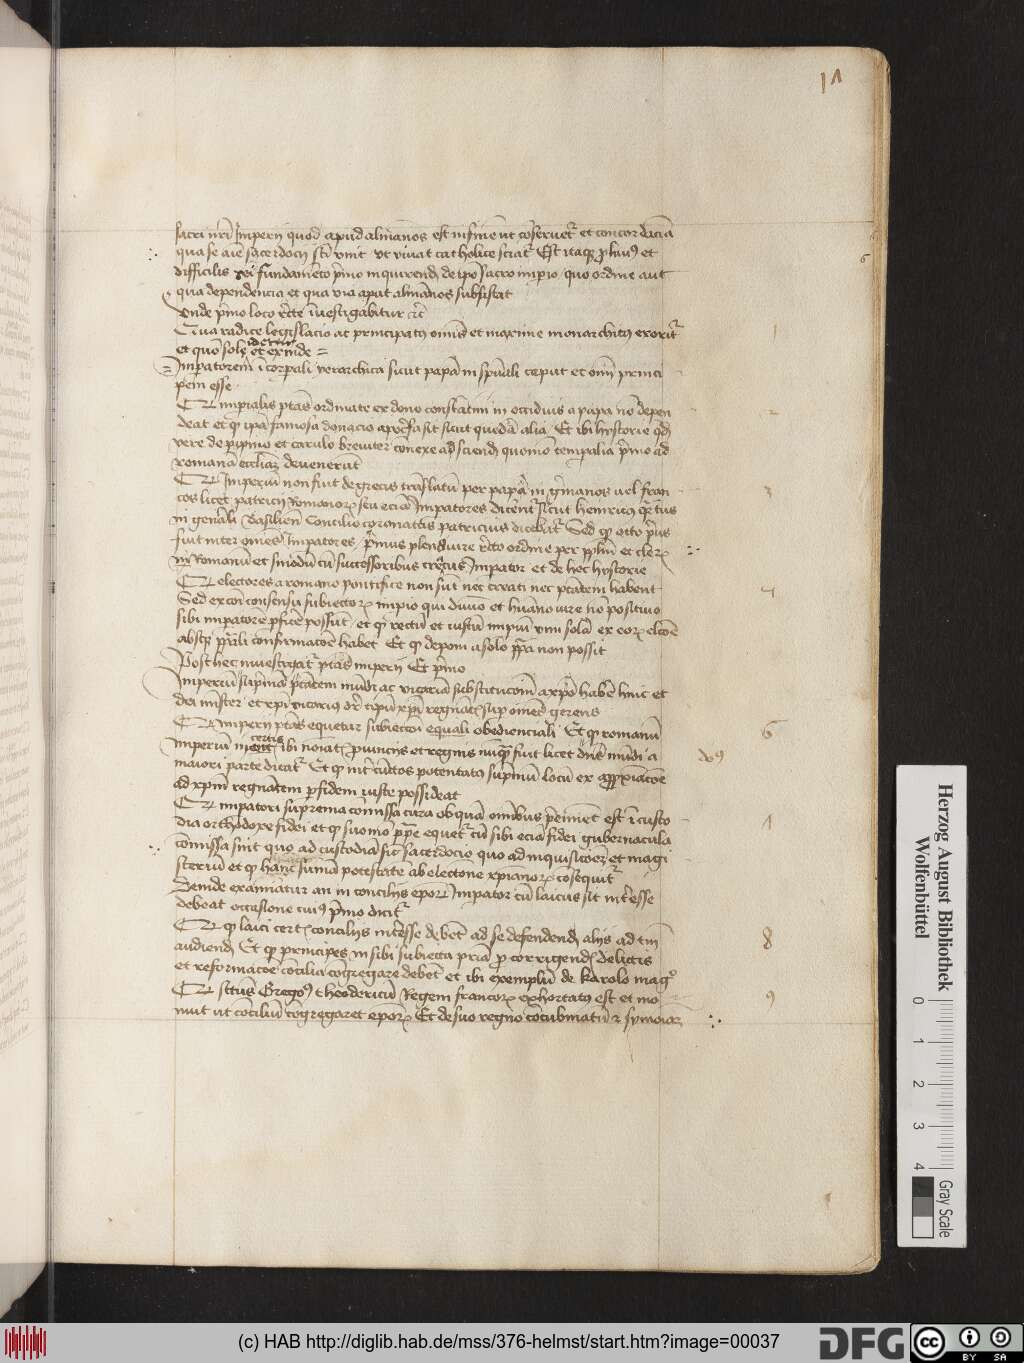 sacri nri Imperij quod apud almanos est insinuet ut coseruet et concordancia
qua se aie sacerdocij sti vniit ut vivat catholice sciat Est itaqz pluius et
difficilis rei fundameto pmo inquirend de ipo sacro imperio quo ordine aut
qua dependencia et qua via aput almanos subsistat
Unde pmo loco recte investigabitur etc
Qua radice legislacio ac principatus omnis et maxime monarchicus exorit
idem
et quo solz et exinde =
= Imperatorem i corporali ierarchica sicut papa in spuali caput et oim princi
pem esse
Et imperialis ptas ordinate ex dono constatini in occiduis a papa no depen
deat et qz ipa famosa donacio apocrifa sit sicut queda alia Et ibi hystorie qd
vere de pipino et carulo breviter conexe ad sciend quomo temporalia pmo ad
romana eccliaz devenerut
Et Imperiu non fuit de grecis traslatu per papa in germanos uel fran
cos licet patricij Romanorz seu ecia Imperatores dicerent sicut henricus quartus
in generali Basilien Concilio coronatus patricius dicebat Sed qz otto pmus
fuit inter omes Imperatores primus pleno iure recto ordine per pplm et clerz
Romanu et sinodu cu successoribus creatus Imperator et de hec hystorie
Et electores a romano pontifice non sut nec creati nec ptatem habent
Sed ex coi consensu subiectorz imperio qui divino et humano iure no positivo
sibi imperatore pficere possunt et qz rectu et iustu imperiu vim sola ex eorz elcoe
absqz ppali confirmacoe habet Et qz deponi a solo ppa non possit
Post hec investigat ptas imperij Et pmo
Imperiu suprema ptatem mudi ac vicaria substituconi a xpo habe hinc et
dei minster et xpi vicarius gerens
Et imperij ptas equetur subiectoi equali obedienciali Et qz romanu
certis
imperiu ibi noiatz provincijs et regnis nuqz fuit licet dns mudi a
maiori parte dicat Et qz int cuctos potentatus supmu locu ex approxiacoe
ad xpm regnatem p fidem iuste possideat
Et imperatori suprema comissa cura ob qua omibus preminet est i custo
dia orthodoxe fidei et qz suomo ppe equet cu sibi ecia fidei gubernacula
comissa sint quo ad custodia sic sacerdocio quo ad inquisicoez et magi
steriu et qz hanc suma potestate ab electone xpianorz cosequit
Deinde examinatur an in concilijs eporz Imperator cu laicus sit interesse
debeat occasione cuius pmo dicit
Et qz laici certz concilijs interesse debet ad se defendend alijs ad tim
audiend Et qz principes in sibi subiecta pria p corrigendz delictis
et reformacoe concilia cogregare debet et ibi exemplu de karolo magº
Et sctus Gregorius theodericu Regem francorz exhortatus est et mo
nuit ut conciliu cogregaret eporz Et de suo regno cocubinatu et symoiaz
1
2
3
4
6
8
9
Herzog August Bibliothek
Wolfenbüttel
0 1 2 3 4
Gray Scale
(c) HAB http://diglib.hab.de/mss/376-helmst/start.htm?image=00037
DFG
cc BY SA